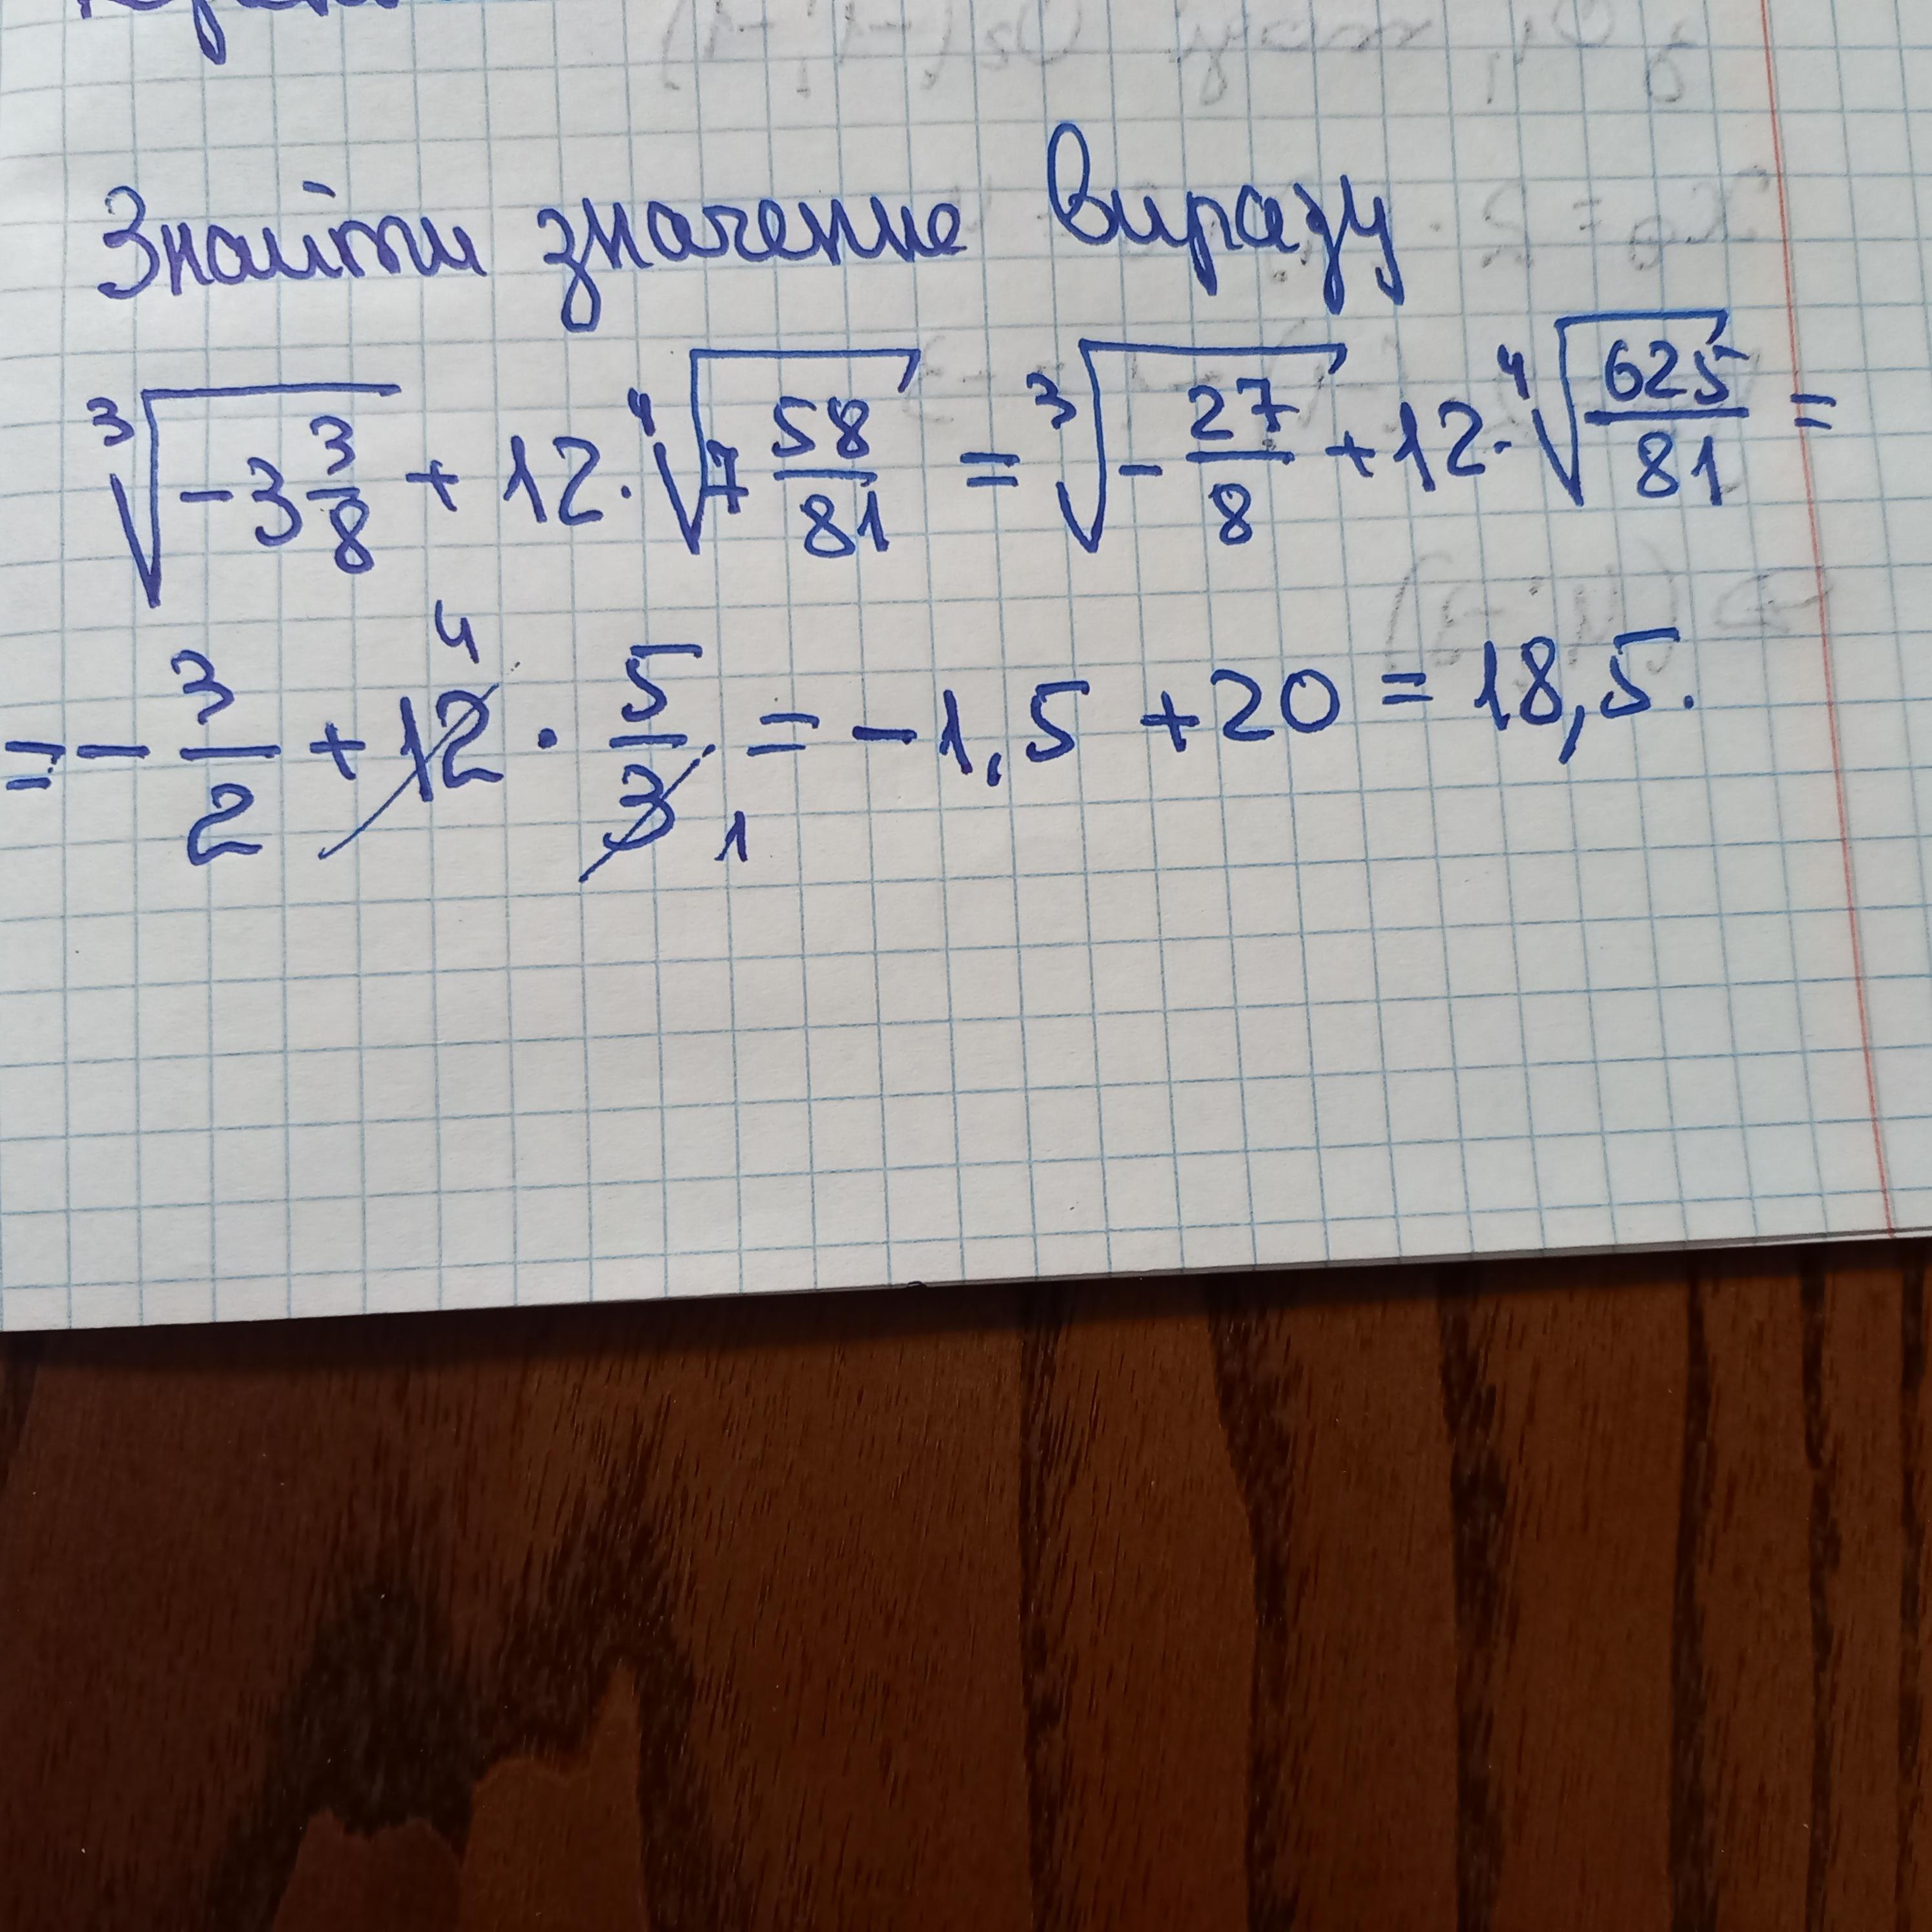 Знайти значение виразу
∛(-3 3/8) + 12 · ∜(7 58/81) = ∛(- 27/8) + 12 · ∜(625/81) =
= - 3/2 + 12 4 · 5/3 1 = - 1,5 + 20 = 18,5.